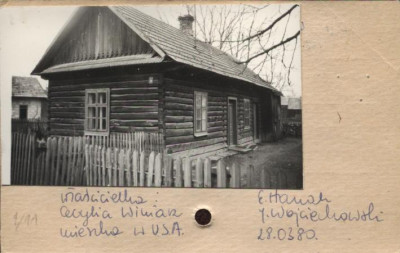 właścicielka:
Cecylia Winiarz
mieszka w USA.
E. Hanak
J. Wojciechowski
28.0380.